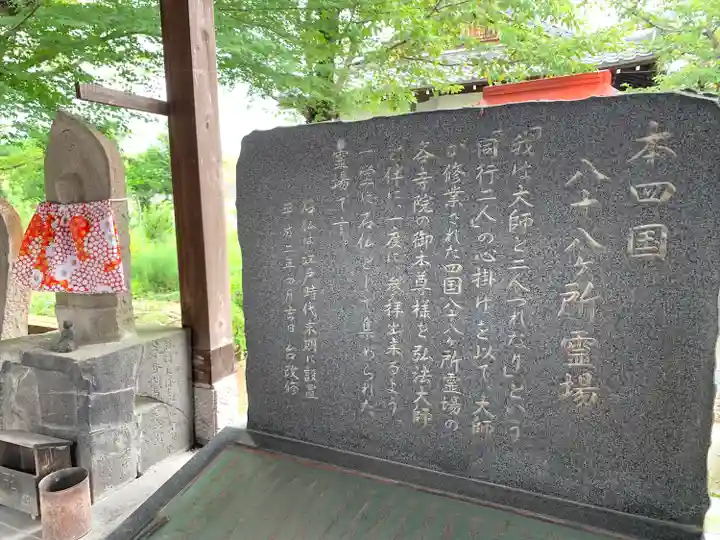 本四国
八十八ヶ所霊場
「我は大師と二人づれなり」という
「同行二人」の心掛けを以て、大師
が修業された四国八十八ヶ所霊場の
各寺院の御本尊様を弘法大師
と伴に一度に参拝出来るよう
一堂に石仏として集められた
霊場です。
石仏は江戸時代末期に設置
平成二年四月吉日 台改修